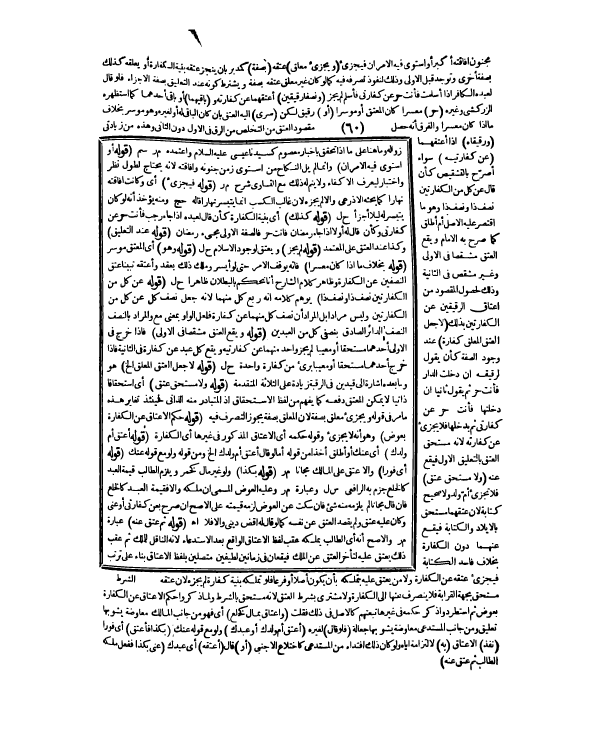 مجنون افاقته أكثر أو استوى فيه الامران فيجزئ (و يجزئ معلق) عتقه (بصفة) كمدبر بان ينجز عتقه بنية الكفارة أو يعلقه كذلك
بصفة أخرى وتوجد قبل الاولى وذلك لنفوذ تصرفه فيه كما لو كان غير معلق عتقه بصفة ويشترط كونه عند التعليق بصفة الاجزاء فلو قال
لعبده الكافر اذا أسلمت فأنت حر عن كفارتى فأسلم لم يجز (ونصفا رقيقين) أعتقهما عن كفارته و(باقيهما) أو باقى أحدهما كما استظهره
الزركشى وغيره (حر) معسرا كان المعتق أو موسرا (أو) رقيق لكن (سرى) اليه العتق بان كان الباقى له أو لغيره وهو موسر بخلاف
ما اذا كان معسرا والفرق أنه حصل (٦٠) مقصود العتق من التخلص من الرق فى الاول دون الثانى وهذه من زيادتى
(ورقيقاه) اذا أعتقهما
(عن كفارتيه) سواء
أصرح بالتشقيص كأن
قال عن كل من الكفارتين
نصف ذا ونصف ذا وهو ما
اقتصر عليه الاصل أم أطلق
كما صرح به الامام ويقع
العتق مشقصا فى الاولى
وغير مشقص فى الثانية
وذلك لحصول المقصود من
اعتاق الرقيقين عن
الكفارتين بذلك (لاجعل
العتق المعلق كفارة) عند
وجود الصفة كأن يقول
لرقيقه ان دخلت الدار
فأنت حر ثم يقول ثانيا ان
دخلتها فأنت حر عن
كفارتى ثم يدخلها فلا يجزئ
عن كفارته لانه مستحق
العتق بالتعليق الاول فيقع
عنه (ولا مستحق عتق)
فلا تجزئ أم ولد ولا صحيح
كتابة لان عتقهما مستحق
بالايلاد والكتابة فيقع
عنهما دون الكفارة
بخلاف فاسد الكتابة
زواله وما هنا على ما اذا تحقق باخبار معصوم كسيدنا عيسى عليه السلام واعتمده مر سم (قوله أو
استوى فيه الامران) وانما لم يل النكاح من استوى زمن جنونه وافاقته لانه يحتاج لطول نظر
واختبار ليعرف الاكفاء ولا يتم له ذلك مع التساوى شرح مر (قوله فيجزئ) أى وكانت افاقته
نهارا كما بحثه الاذرعى والا لم يجز لان غالب الكسب انما يتيسر نهارا قاله حج ومنه يؤخذ أنه لو كان
يتيسر له ليلا أجزأ حل (قوله كذلك) أى بنية الكفارة كأن قال لعبده اذا جاء رجب فأنت حر عن
كفارتى وكأن قال له أولا اذا جاء رمضان فأنت حر فالصفة الاولى مجىء رمضان (قوله عند التعليق)
وكذا عند العتق على المعتمد (قوله لم يجز) ويعتق لوجود الاسلام حل (قوله وهو) أى المعتق موسر
(قوله بخلاف ما اذا كان معسرا) فانه يوقف الامر حتى لو أيسر وملك ذلك بعقد وأعتقه تبينا عتق
النصفين عن الكفارة وظاهر كلام الشارح أنا نحكم بالبطلان ظاهرا حل (قوله عن كل من
الكفارتين نصف ذا ونصف ذا) يوهم كلامه انه ربع كل منهما لانه جعل نصف كل عن كل من
الكفارتين وليس مرادا بل المراد أن نصف كل منهما عن كفارة فلعل الواو بمعنى مع والمراد بالنصف
النصف الدائر الصادق بنصفى كل من العبدين (قوله و يقع العتق مشقصا فى الاولى) فاذا خرج فى
الاولى أحدهما مستحقا أو معيبا لم يجز واحد منهما عن كفارتيه و يقع كل عبد عن كفارة فى الثانية فاذا
خرج أحدهما مستحقا أو معيبا برئ من كفارة واحدة حل (قوله لا جعل العتق المعلق الخ) هو
وما بعده اشارة الى قيدين فى الرقبة زيادة على الثلاثة المتقدمة (قوله ولا مستحق عتق) أى استحقاقا
ذاتيا لا يمكن المعتق دفعه كما يفهم من لفظ الاستحقاق اذ المتبادر منه الذاتى فحينئذ تغاير هذه
ما مر فى قوله و يجزئ معلق بصفة لان المعلق بصفة يجوز التصرف فيه (قوله حكم الاعتاق عن الكفارة
بعوض) وهو أنه لا يجزئ وقوله حكمه أى الاعتاق المذكور فى غيرها أى الكفارة (قوله أعتق أم
ولدك) أى عنك أو أطلق أخذا من قوله أما لو قال أعتق أم ولدك الخ ومن قوله ولو مع قوله عنك (قوله
أى فورا) والا عتق على المالك مجانا مر (قوله بكذا) ولو غير مال كخمر و يلزم الطالب قيمة العبد
كالخلع جزم به الرافعى سل وعبارة مر وعليه العوض المسمى ان ملكه والا فقيمة العبد كالخلع
فان قال مجانا لم يلزمه منه شئ فان سكت عن العوض لزمه قيمته على الاصح ان صرح بعن كفارتى أو عنى
وكان عليه عتق ولم يقصد العتق عن نفسه كما لو قال له اقض دينى والا فلا اه (قوله ثم عتق عنه) عبارة
مر والاصح أنه أى الطالب يملكه عقب لفظ الاعتاق الواقع بعد الاستدعاء لانه الناقل للملك ثم عقب
ذلك يعتق عليه لتأخر العتق عن الملك فيقعان فى زمانين لطيفين متصلين بلفظ الاعتاق بناء على ترتب
فيجزئ عتقه عن الكفارة ولا من يعتق عليه بتملكه بأن يكون أصلا أو فرعا فلو تملكه بنية كفارة لم يجز لان عتقه الشرط
مستحق بجهة القرابة فلا ينصرف عنها الى الكفارة ولا مشترى بشرط العتق لانه مستحق بالشرط ولما ذكروا حكم الاعتاق عن الكفارة
بعوض ثم استطردوا ذكر حكمه فى غيرها تبعتهم كالاصل فى ذلك فقلت (واعتاق بمال كخلع) أى فهو من جانب المالك معاوضة يشوبها
تعليق ومن جانب المستدعى معاوضة يشوبها جعالة (فلو قال) لغيره (أعتق أم ولدك أو عبدك) ولو مع قوله عنك (بكذا فأعتق) أى فورا
(نفذ) الاعتاق (به) لالتزامه اياه ولو كان ذلك افتداء من المستدعى كاختلاع الاجنبى (أو) قال (أعتقه) أى عبدك (عنى بكذا ففعل ملكه
الطالب ثم عتق عنه)